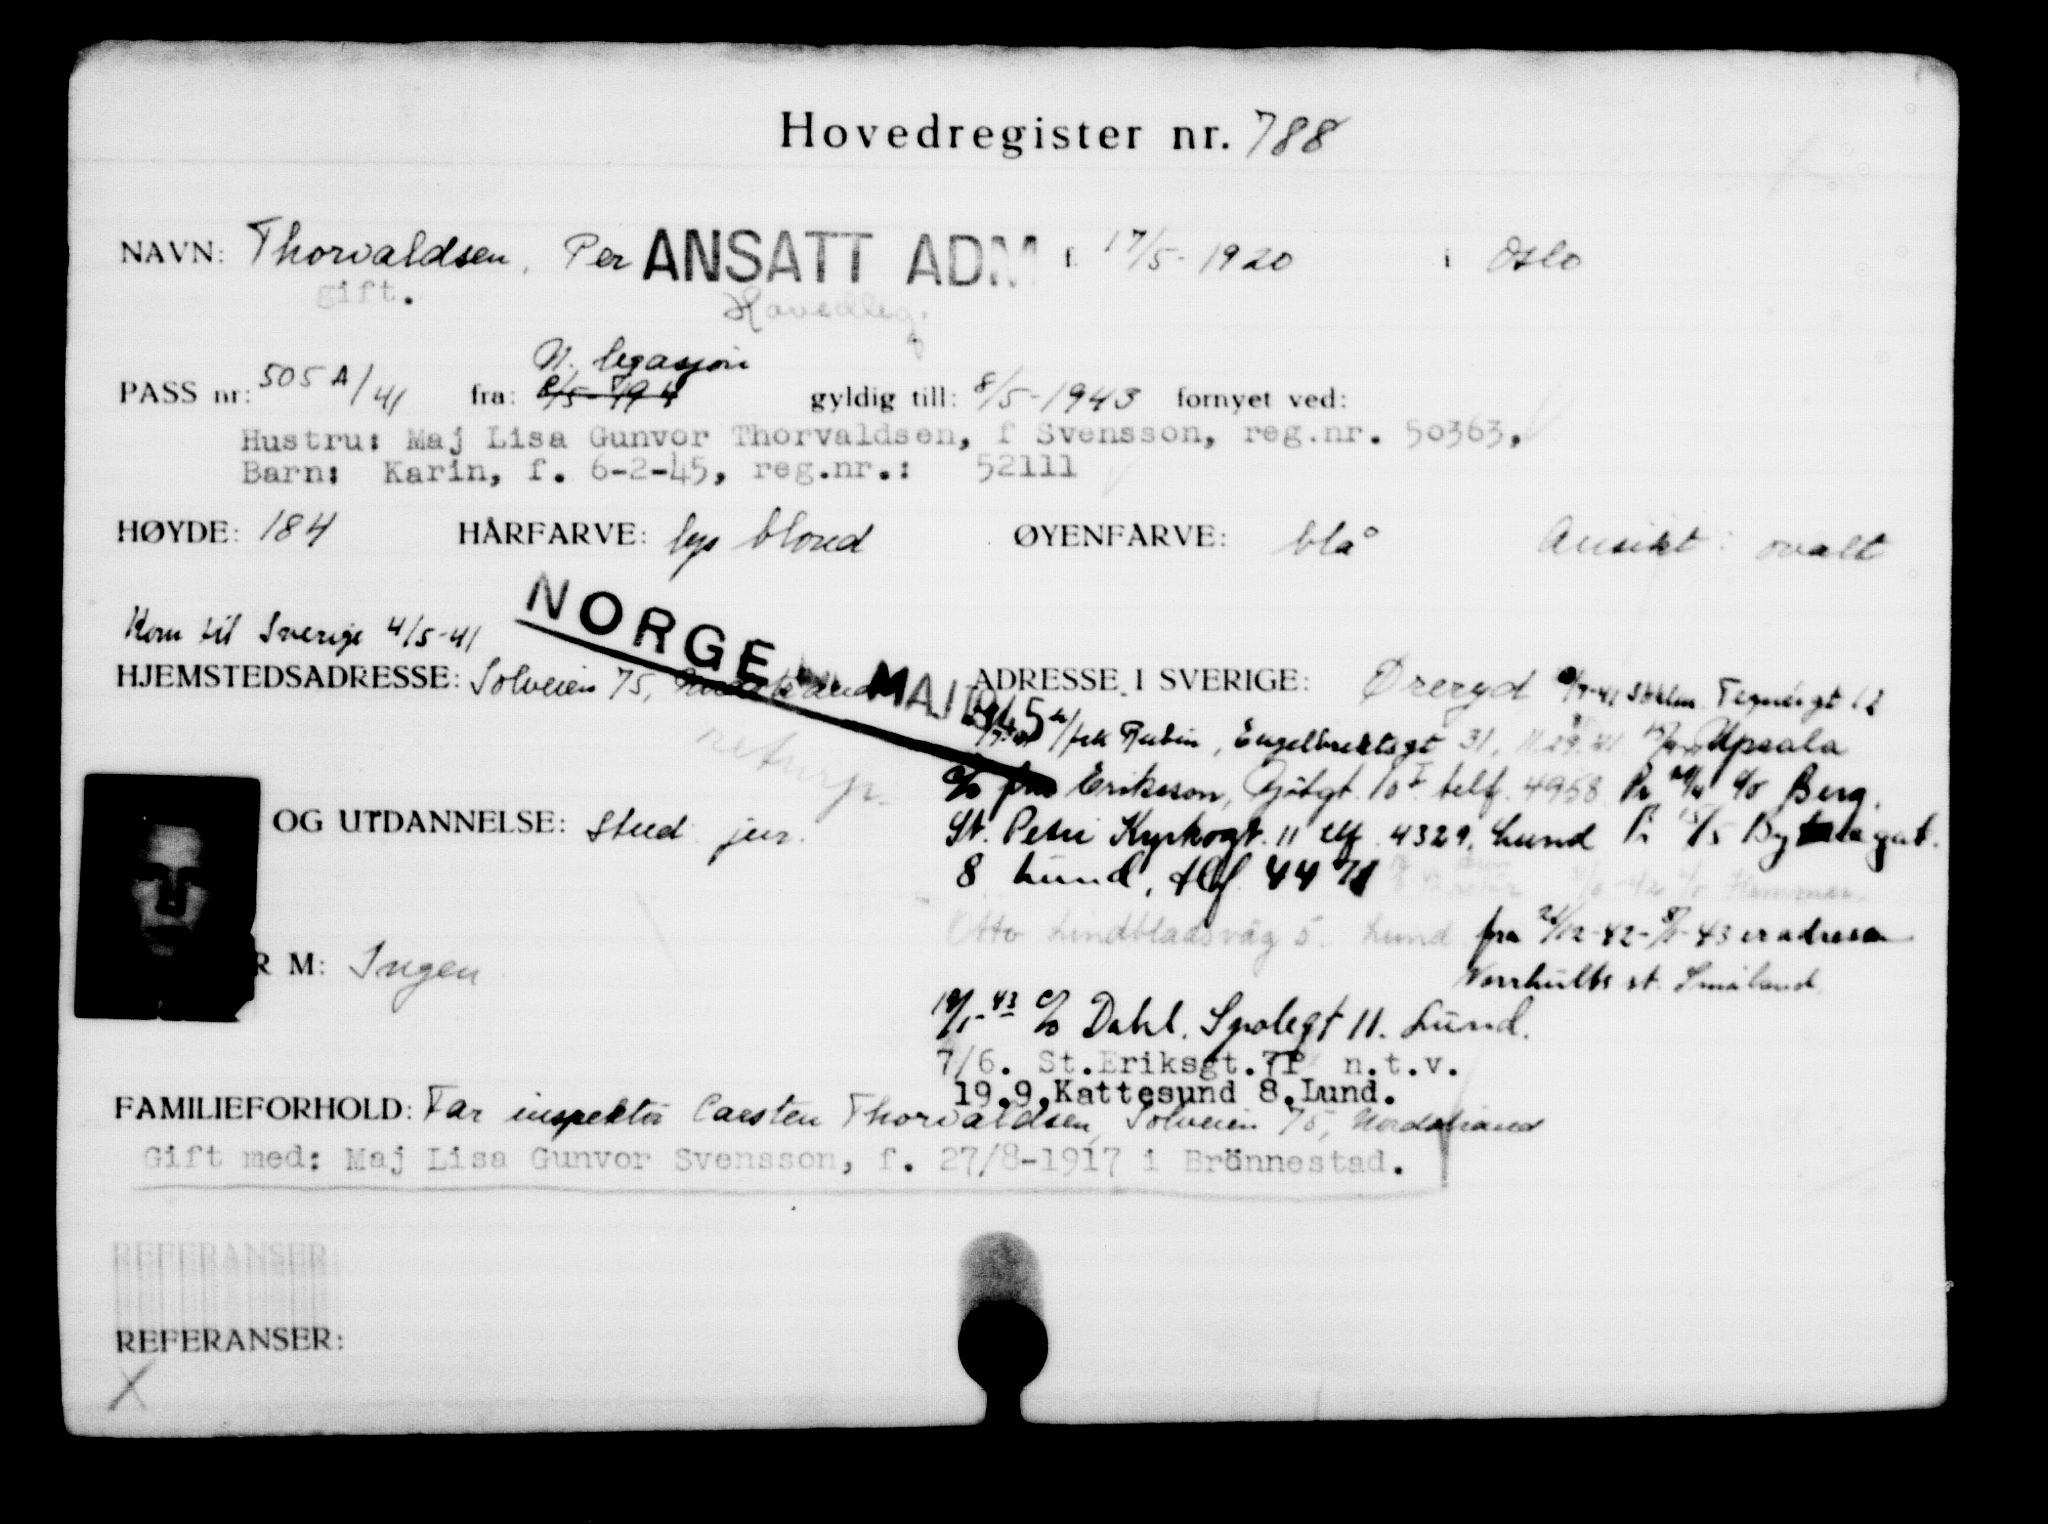 Hovedregister nr. 788
NAVN: Thorvaldsen, Per ANSATT ADM f. 17/5-1920 i Oslo
gift. Hovedleg.
N. legasjon
PASS nr: 505 A/41 fra: gyldig till: 8/5-1943 fornyet ved:
Hustru: Maj Lisa Gunvor Thorvaldsen, f Svensson, reg.nr. 50363,
Barn: Karin, f. 6-2-45, reg.nr.: 52111
HØYDE: 184 HÅRFARVE: lys blond ØYENFARVE: blå Ansikt: ovalt
NORGE MAI 1945
Kom til Sverige 4/5-41
HJEMSTEDSADRESSE: Solveien 75, ADRESSE I SVERIGE: Øreryd Sthlm. Tegnérgt 12
Rubin, Engelbrektsgt 31, Upsala
returp.
c/o Eriksson, 10 I telf. 4958 c/o Berg,
OG UTDANNELSE: Stud. jur.
St. Petri Kyrkogt. 11 tlf. 4329, Lund
8 Lund, tlf. 44
Otto Lindbladsväg 5. Lund fra er adressen
R M: Ingen
Norrhults st. Småland
c/o Dahl, Spolegt 11. Lund.
7/6. St.Eriksgt.71 n.t.v.
19.9.Kattesund 8.Lund.
FAMILIEFORHOLD: Far inspektør Carsten Thorvaldsen, Solveien 75, Nordstrand
Gift med: Maj Lisa Gunvor Svensson, f. 27/8-1917 i Brönnestad.
REFERANSER:
REFERANSER:
X